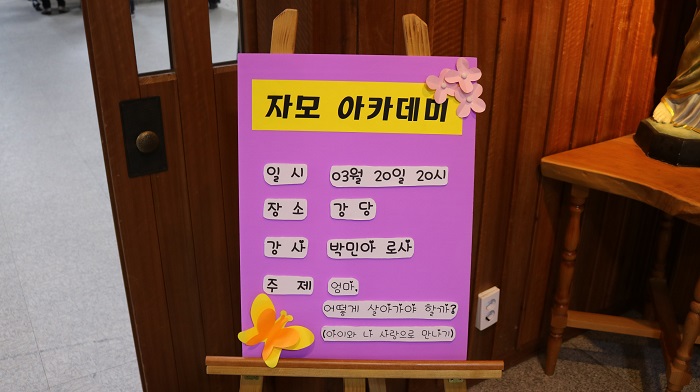 자모 아카데미
일 시 03월 20일 20시
장 소 강 당
강 사 박민아 로사
주 제 엄마,
어떻게 살아가야 할까?
(아이와 나 사랑으로 만나기)